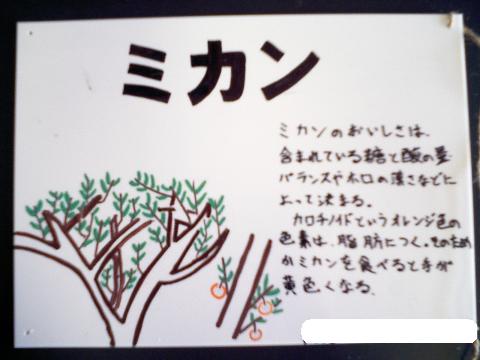 ミカン
ミカンのおいしさは、
含まれている糖と酸の量
バランスやホロの薄さなどに
よって決まる。
カロチノイドというオレンジ色の
色素は、脂肪につく。そのため
かミカンを食べると手が
黄色くなる。